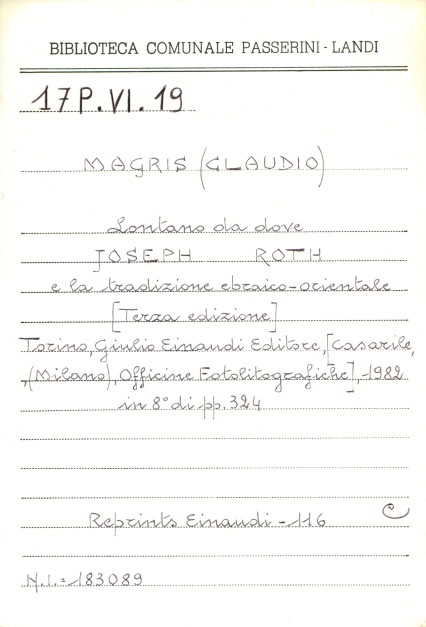 BIBLIOTECA COMUNALE PASSERINI - LANDI
17P.VI.19
MAGRIS (CLAUDIO)
Lontano da dove
JOSEPH ROTH
e la tradizione ebraico-orientale
[Terza edizione]
Torino, Giulio Einaudi Editore, [Casarile,
(Milano), Officine Fotolitografiche], -1982
in 8° di pp. 324
Reprints Einaudi - 116
C
N.I. = 183089